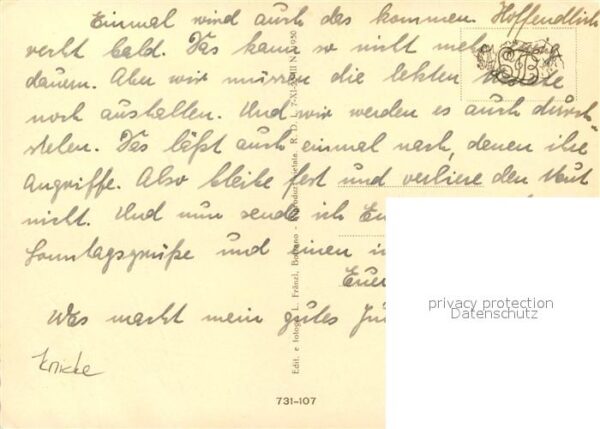 Einmal wird auch das kommen. Hoffendlich
recht bald. Das kann so nicht mehr
dauern. Aber wir müssen die letzten
noch aushalten. Und wir werden es auch durch-
stehen. Das läßt auch einmal nach, denen ihre
Angriffe. Also bleibe fest und verliere den Mut
nicht. Und nun sende ich
Sonntagsgrüße und einen
Euer
Was macht mein gutes
Edit. e fotogr. L. Fränzl, Bolzano - Riproduz. vietate. R. D. L. 7-XI-
731-107
privacy protection
Datenschutz